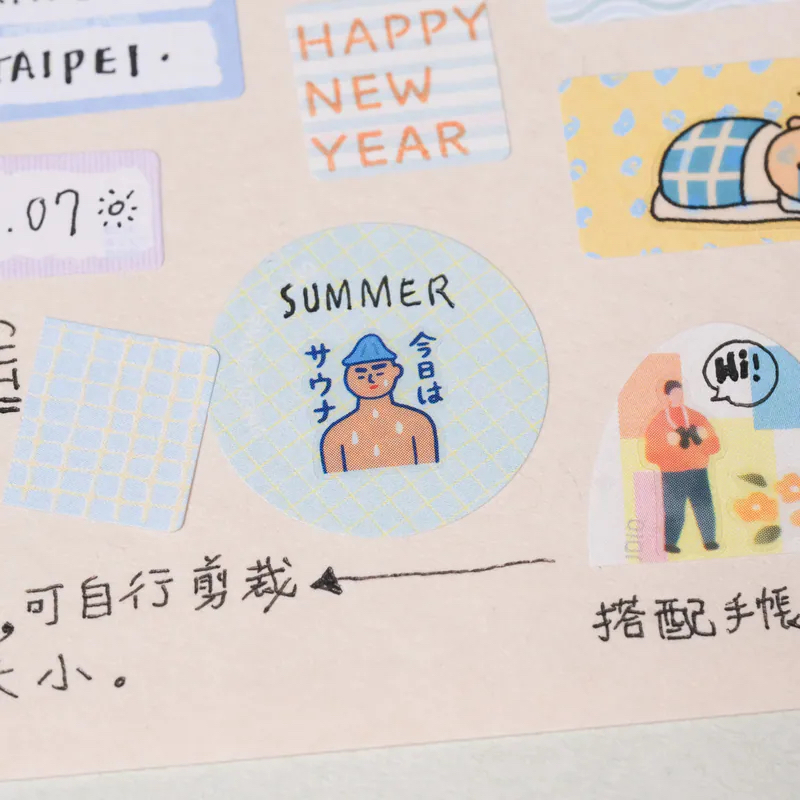 TAIPEI.
HAPPY
NEW
YEAR
.07
SUMMER
今日は
サウナ
Hi!
,可自行剪裁
大小。
搭配手帳